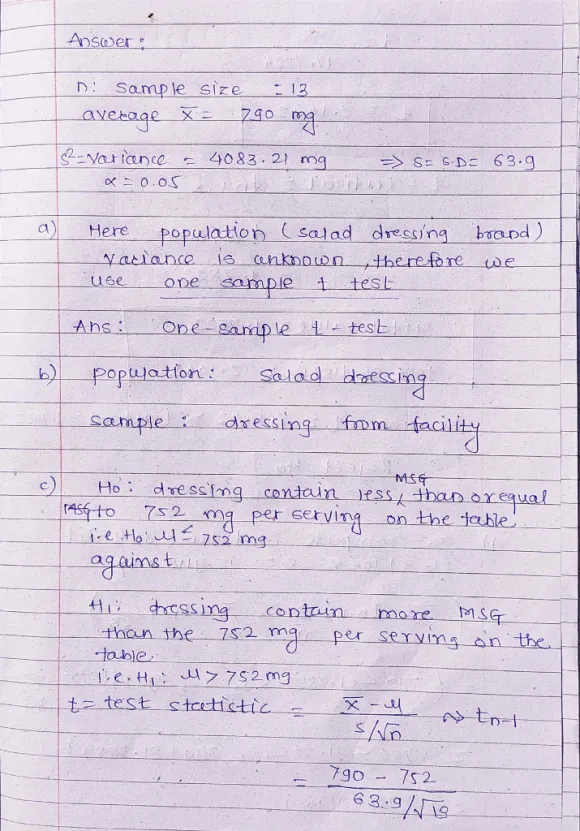 Answer :
n: sample size = 13
average x̄ = 790 mg
s²=variance = 4083.21 mg ⇒ S= S.D= 63.9
α = 0.05
a) Here population (salad dressing brand)
variance is unknown, therefore we
use one sample t test
Ans: One-sample t-test
b) population: Salad dressing
sample : dressing from facility
c) Ho: dressing contain less MSG than or equal
to 752 mg per serving on the table
i.e Ho: μ ≤ 752 mg
against
H1: dressing contain more MSG
than the 752 mg per serving on the
table.
i.e. H1: μ > 752mg
t= test statistic = x̄ - μ / s/√n ~> tn-1
= 790 - 752 / 63.9/√13